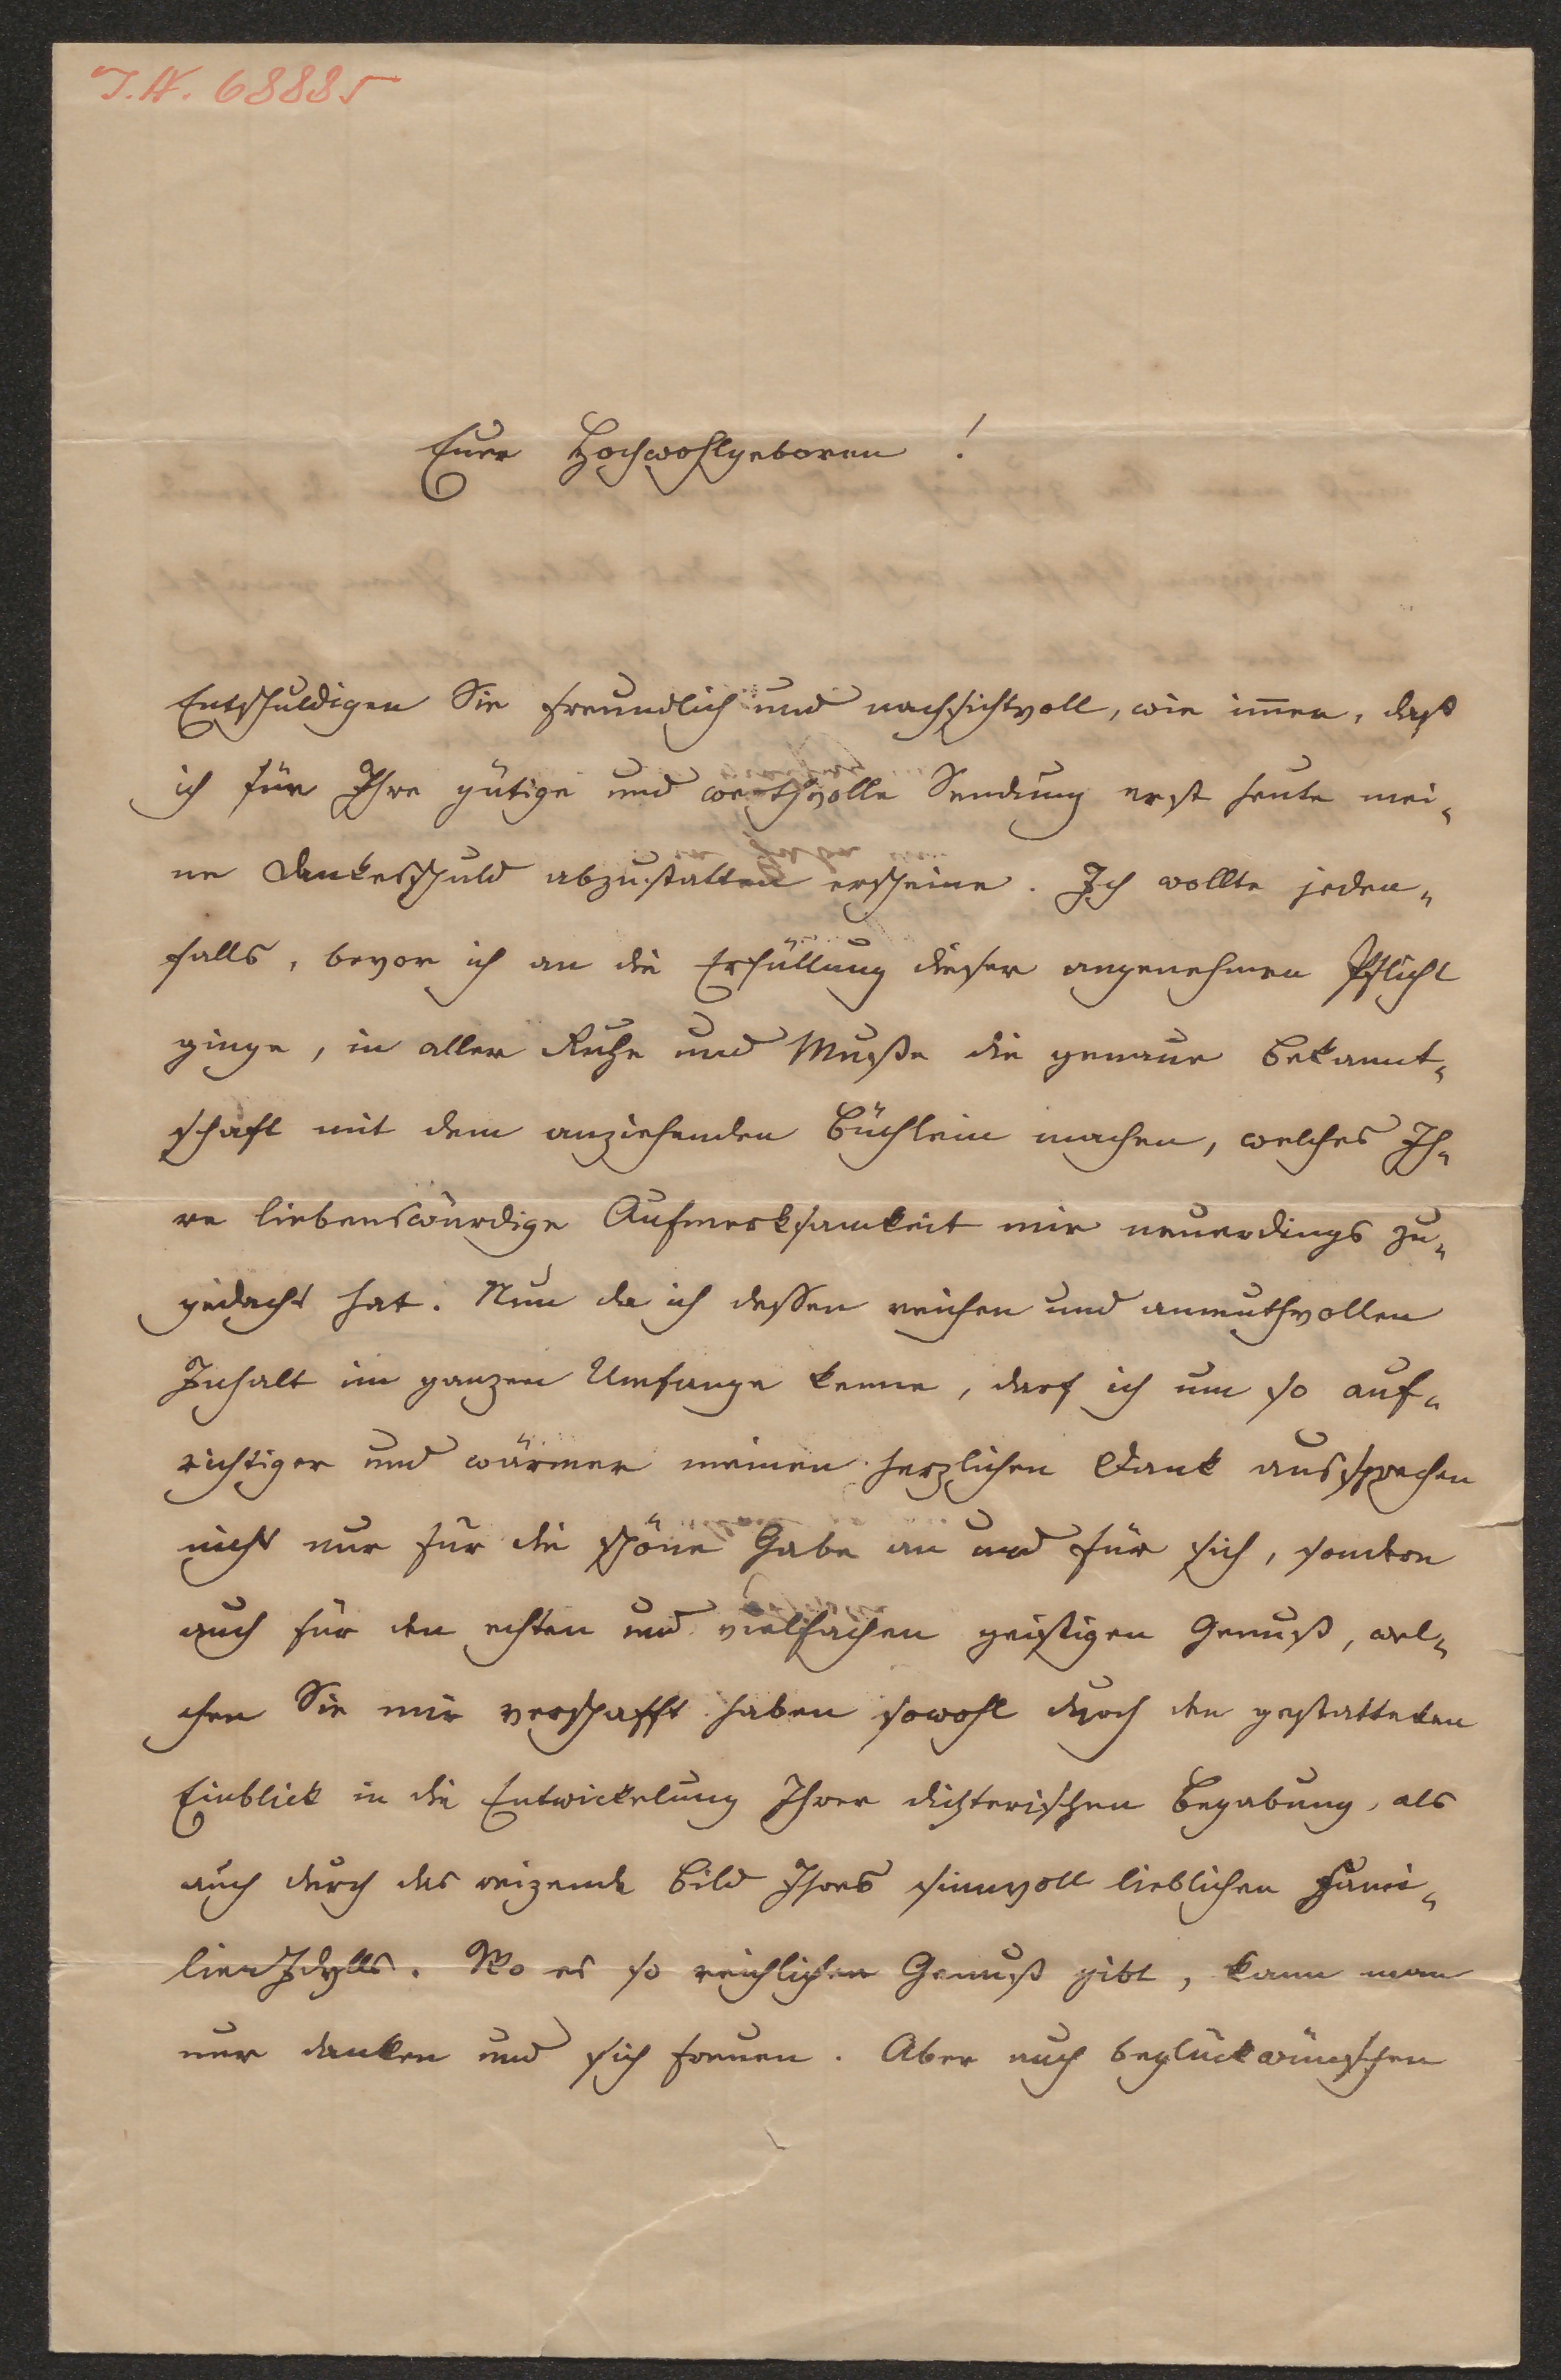 I.N. 68885
Euer Hochwohlgeboren!
Entschuldigen Sie freundlich und nachsichtvoll, wie im̄er, daß
ich für Ihre gütige und werthvolle Sendung erst heute mei-
ne Dankesschuld abzustatten erscheine. Ich wollte jeden-
falls, bevor ich an die Erfüllung dieser angenehmen Pflicht
ginge, in aller Ruhe und Muße die genaue Bekannt-
schaft mit dem anziehenden Büchlein machen, welches Ih-
re liebenswürdige Aufmerksamkeit mir neuerdings zu-
gedacht hat. Nun da ich dessen reichen und anmuthvollen
Inhalt im ganzen Umfange kenne, darf ich um so auf-
richtiger und wärmer meinen herzlichen Dank aussprechen
nicht nur für die schöne Gabe an und für sich, sondern
auch für den echten und vielfachen geistigen Genuß, wel-
chen Sie mir verschafft haben sowohl durch den gestatteten
Einblick in die Entwickelung Ihrer dichterischen Begabung, als
auch durch das reizende Bild Ihres sinnvoll lieblichen Fami-
lien Idylls. Wo es so reichlichen Genuß gibt, kann man
nur danken und sich freuen. Aber auch beglückwünschen